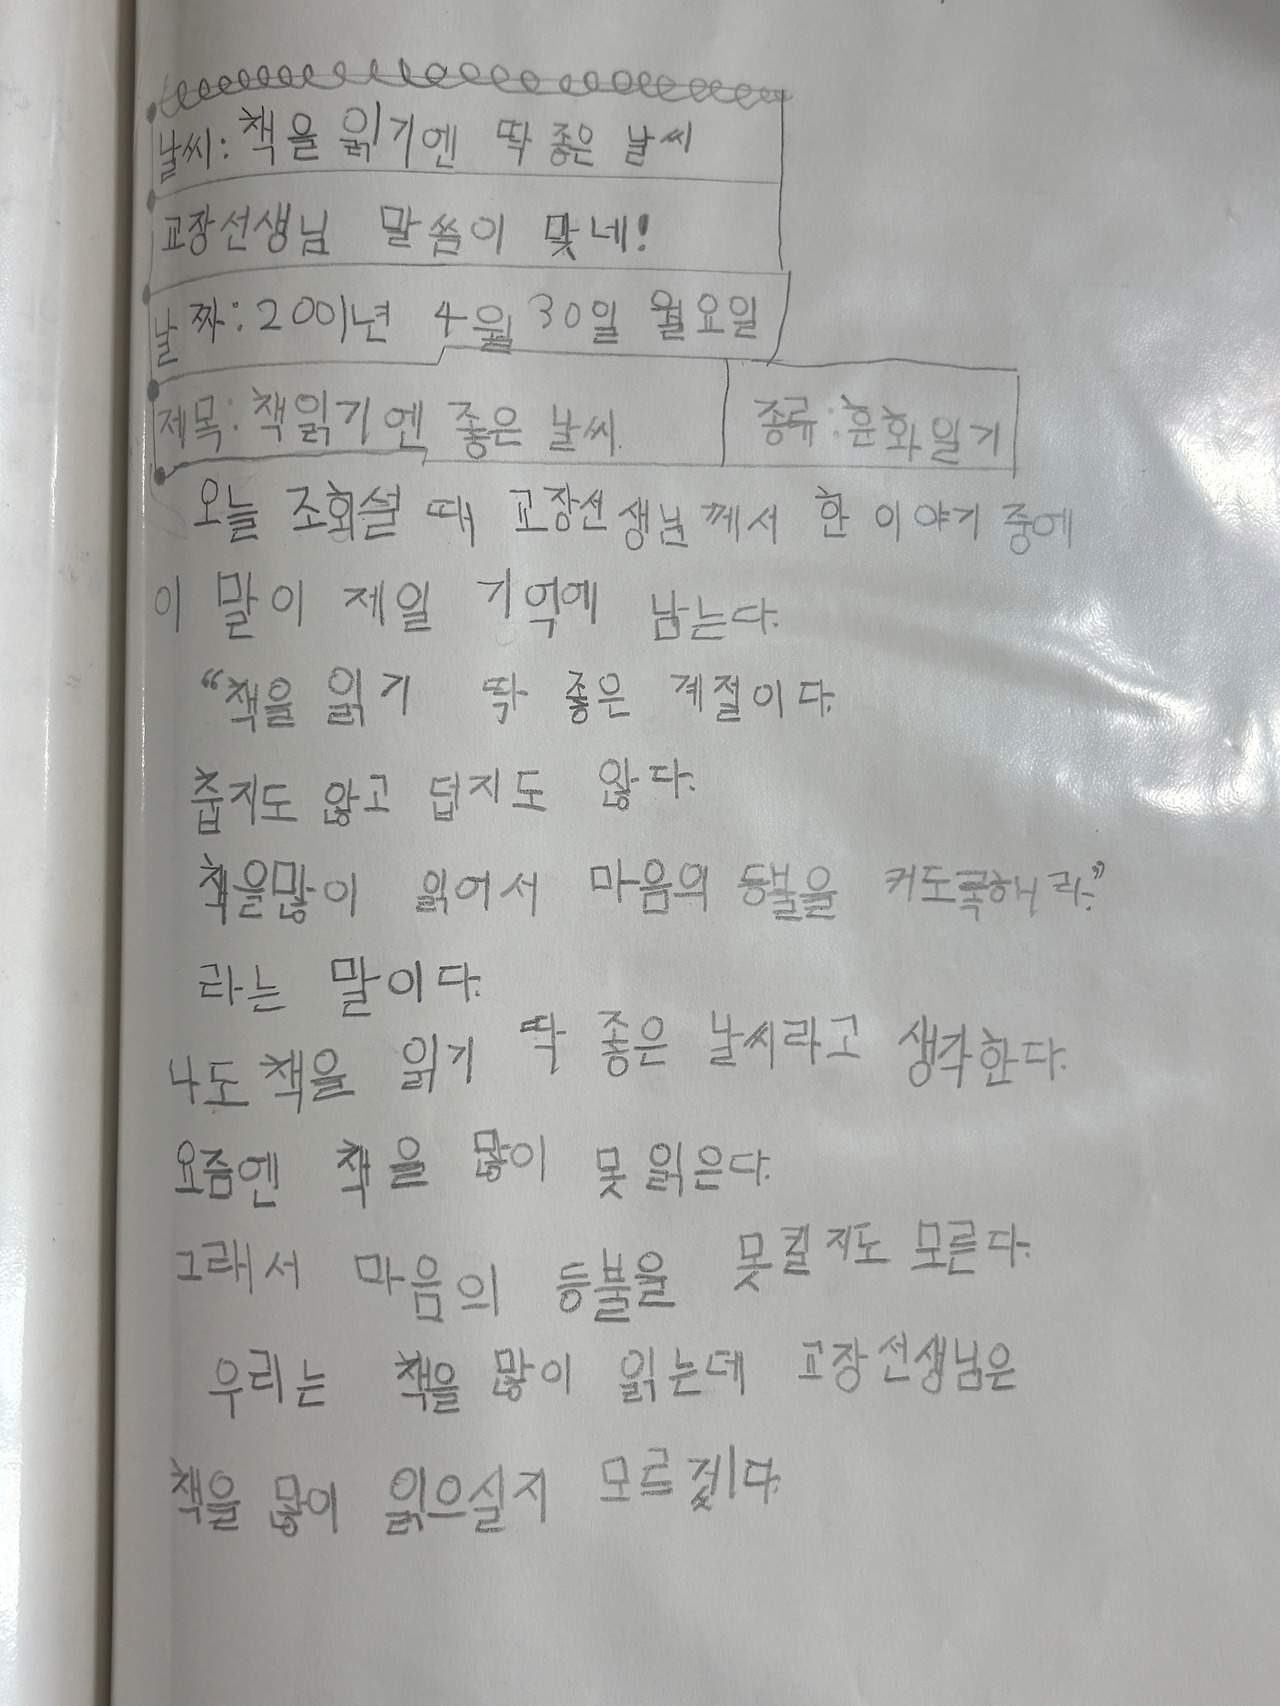 날씨: 책을 읽기엔 딱 좋은 날씨
교장선생님 말씀이 맞네!
날짜: 2001년 4월 30일 월요일
제목: 책읽기엔 좋은 날씨. 종류: 훈화일기
오늘 조회설 때 교장선생님께서 한 이야기 중에
이 말이 제일 기억에 남는다.
“책을 읽기 딱 좋은 계절이다.
춥지도 않고 덥지도 않다.
책을많이 읽어서 마음의 등불을 커도록해라.”
라는 말이다.
나도 책을 읽기 딱 좋은 날씨라고 생각한다.
요즘엔 책을 많이 못 읽은다.
그래서 마음의 등불을 못킬지도 모른다.
우리는 책을 많이 읽는데 교장선생님은
책을 많이 읽으실지 모르겠다.